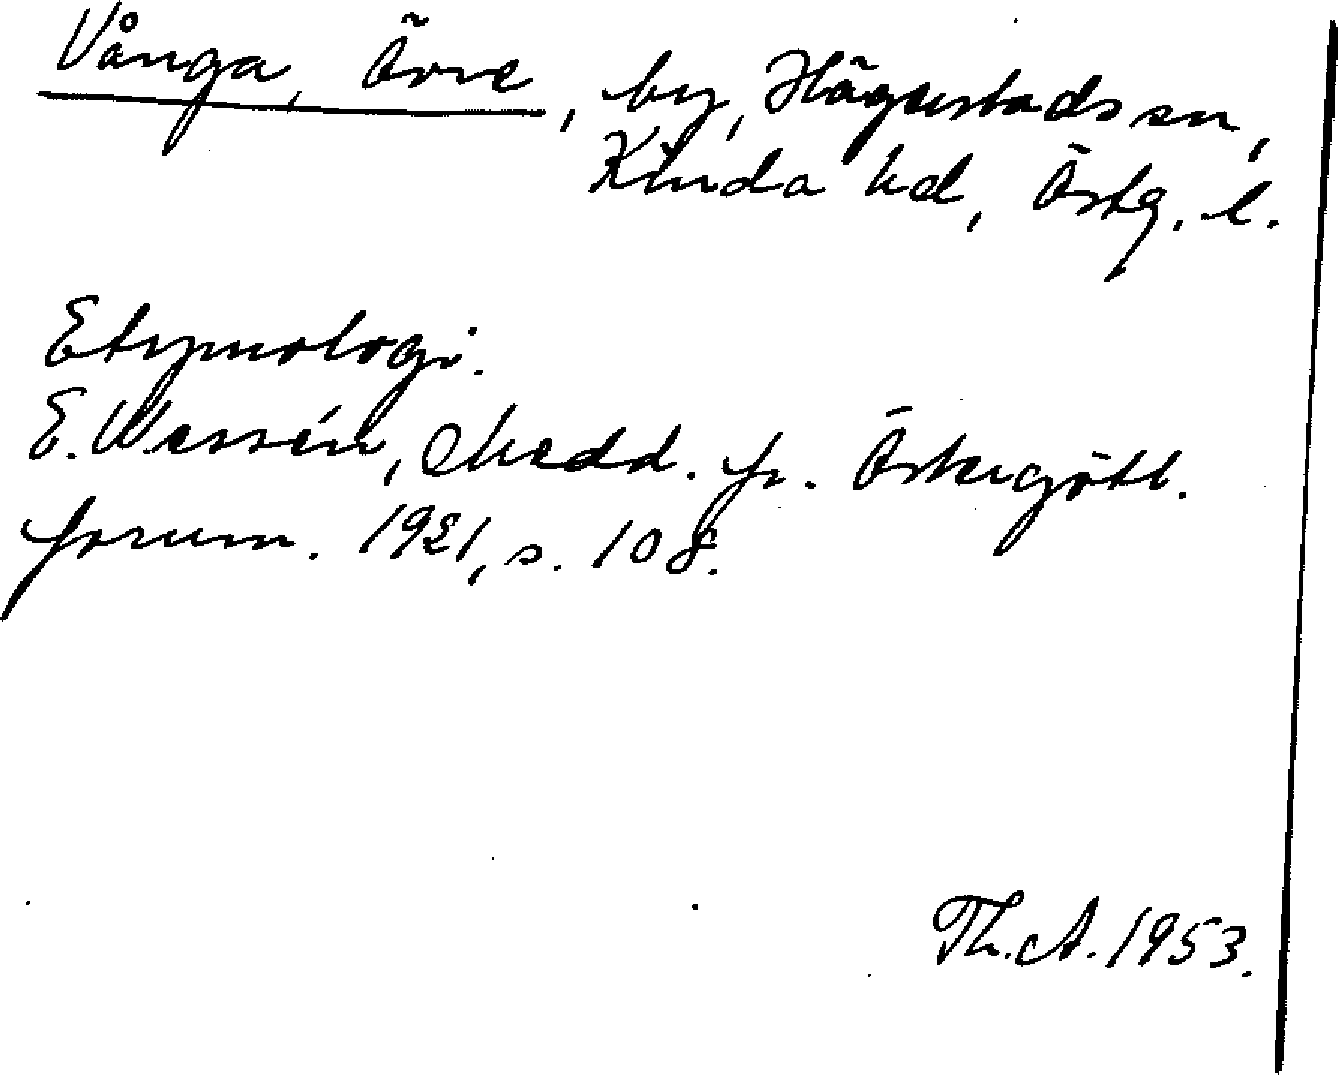 Vånga, Övre, by, Hägerstads sn,
Kinda hd, Östg. l.
Etymologi.
E. Wessén, Medd. fr. Östergötl.
fornm. 1921, s. 108.
Th. A. 1953.